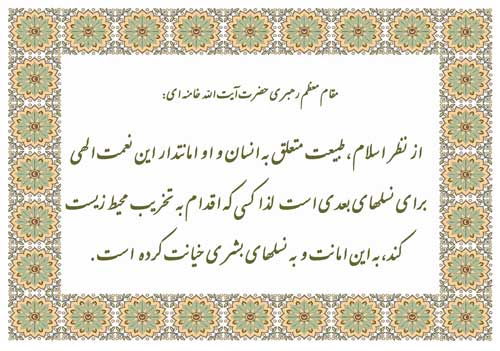 مقام معظم رهبری حضرت آیت الله خامنه ای:
از نظر اسلام، طبیعت متعلق به انسان و او امانتدار این نعمت الهی
برای نسلهای بعدی است لذا کسی که اقدام به تخریب محیط زیست
کند، به این امانت و به نسلهای بشری خیانت کرده است.